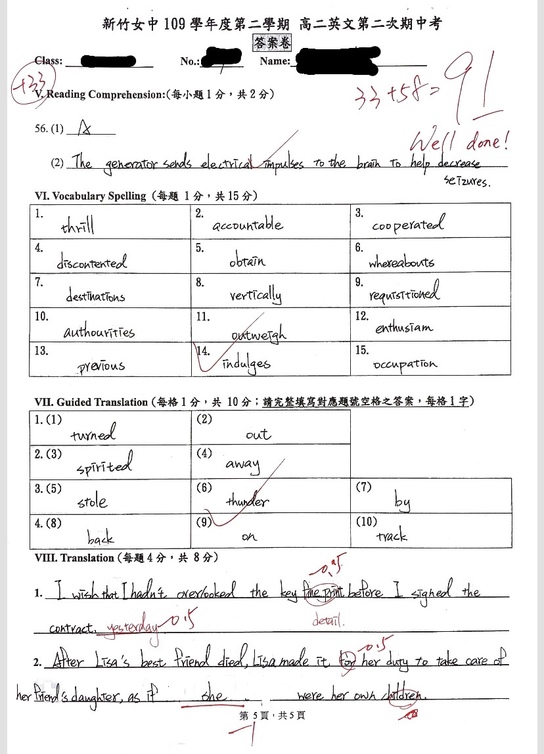 新竹女中 109 學年度第二學期 高二英文第二次期中考
答案卷
Class: No.: Name:
+33
33+58=91
V. Reading Comprehension:(每小題 1 分，共 2 分)
Well done!
56. (1) A
(2) The generator sends electrical impulses to the brain to help decrease
seizures.
VI. Vocabulary Spelling (每題 1 分，共 15 分)
1. thrill 2. accountable 3. cooperated
4. discontented 5. obtain 6. whereabouts
7. destinations 8. vertically 9. requisitioned
10. authourities 11. outweigh 12. enthusiam
13. previous 14. indulges 15. occupation
VII. Guided Translation (每格 1 分，共 10 分；請完整填寫對應題號空格之答案，每格 1 字)
1. (1) turned (2) out
2. (3) spirited (4) away
3. (5) stole (6) thunder (7) by
4. (8) back (9) on (10) track
VIII. Translation (每題 4 分，共 8 分)
-0.5
1. I wish that I hadn't overlooked the key fine print before I signed the
detail.
contract. yesterday -0.5
-0.5
2. After Lisa's best friend died, Lisa made it for her duty to take care of
her friend's daughter, as if she were her own children.
第 5 頁，共 5 頁
-1